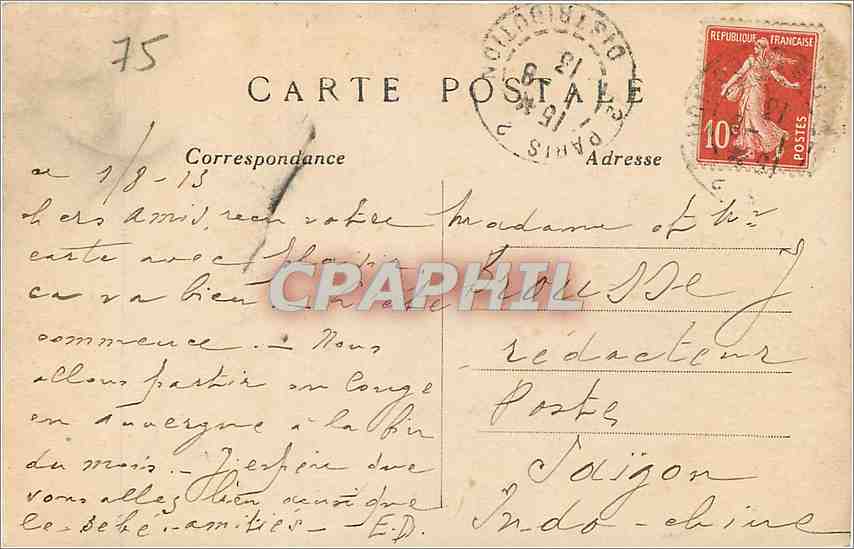 75
DISTRIBUTION
PARIS 2
15
1 - 8
13
REPUBLIQUE FRANÇAISE
10c
POSTES
CARTE POSTALE
Correspondance
Adresse
CPAPHIL
ce 1/8-13
chers amis, reçu votre
carte avec plaisir
ça va bien. l'été
commence. — Nous
allons partir en congé
en Auvergne à la fin
du mois. — J'espère que
vous allez bien ainsi que
le bébé. amitiés — E.D.
Madame et Mr
Brousse J
rédacteur
Postes
Saïgon
Indo-chine